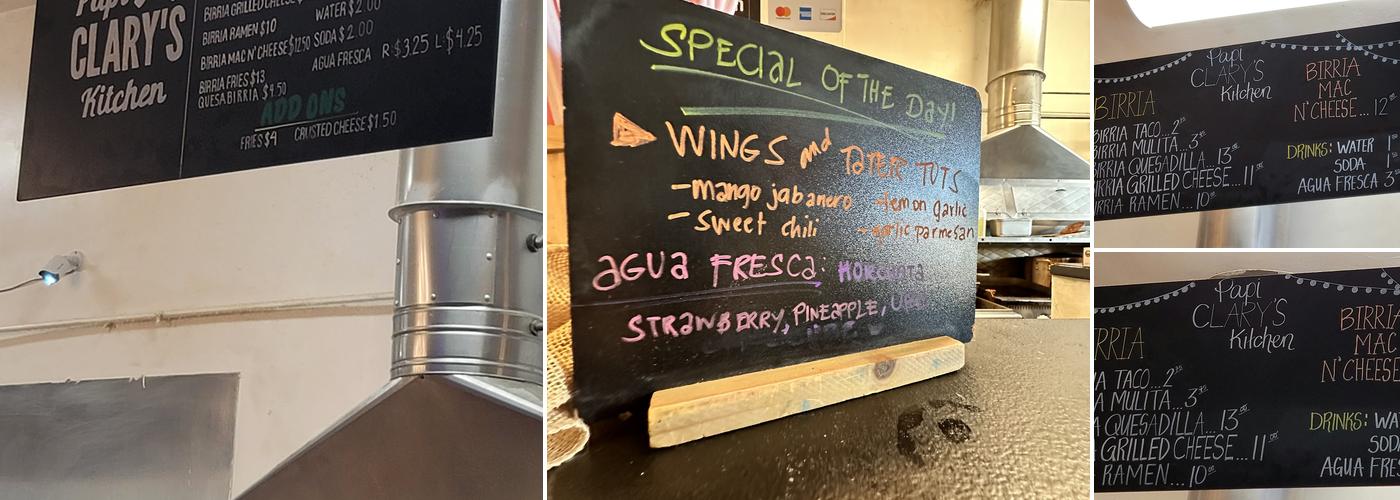 Papi
CLARY'S
Kitchen
BIRRIA GRILLED CHEESE
BIRRIA RAMEN $10
BIRRIA MAC N' CHEESE $12.50
BIRRIA FRIES $13
QUESABIRRIA $4.50
WATER $2.00
SODA $2.00
AGUA FRESCA R $3.25 L $4.25
ADD ONS
FRIES $4 CRUSTED CHEESE $1.50
SPECIAL OF THE Day!
WINGS and TATER TOTS
-mango jabanero -lemon garlic
-sweet chili -garlic parmesan
AGUA FRESCA: HORCHATA
STRAWBERRY, PINEAPPLE,
Papi
CLARY'S
Kitchen
BIRRIA
BIRRIA TACO...2
BIRRIA MULITA...3
BIRRIA QUESADILLA...13
BIRRIA GRILLED CHEESE...11
BIRRIA RAMEN...10
BIRRIA
MAC
N'CHEESE...12
DRINKS: WATER 1
SODA 1
AGUA FRESCA 3
Papi
CLARY'S
Kitchen
RRIA
A TACO...2
A MULITA...3
A QUESADILLA...13
GRILLED CHEESE...11
RAMEN...10
BIRRI
MAC
N'CHEESE
DRINKS: WA
SOD
AGUA FRES